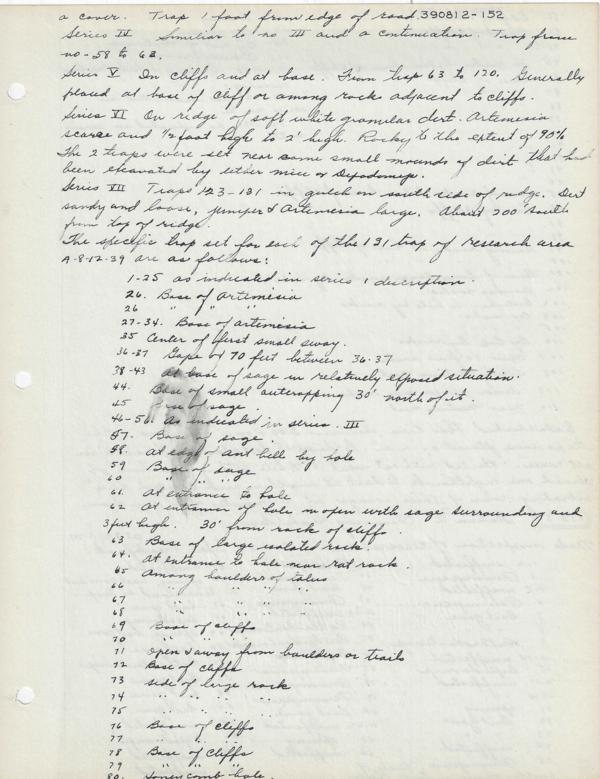 a cover. Trap 1 foot from edge of road. 390812-152
Series IV Similiar to no III and a continuation. Trap from
no-58 to 62.
Series V In cliffs and at base. From trap 63 to 120. Generally
placed at base of cliff or among rocks adjacent to cliffs.
Series VI On ridge of soft white granular dirt. Artemesia
scarse and 1/2 foot high to 2' high. Rocky to the extent of 90%
The 2 traps were set near some small mounds of dirt that had
been excavated by either mice or Dipodomys.
Series VII Traps 123-131 in gulch on south side of ridge. Dirt
sandy and loose, juniper & Artemesia large. About 200' south
from top of ridge.
The specific trap set for each of the 131 trap of research area
A-8-12-39 are as follows:
1-25 as indicated in series 1 description.
26. Base of artemesia
26 " " "
27-34. Base of artemesia
35 Center of first small sway.
36-37 Gape of 70 feet between 36-37
38-43 At base of sage in relatively exposed situation.
44. Base of small outcropping 30' north of it.
45 Base of sage.
46-56. As indicated in series III
57. Base of sage.
58. At edge of ant hill by hole
59 Base of sage
60 " " "
61. At entrance to hole
62 At entrance of hole in open with sage surrounding and
3 feet high. 30' from rock of cliffs.
63 Base of large isolated rock.
64. At entrance to hole near rat rock.
65 Among boulders of talus
66 " " " "
67 " " " "
68 " " " "
69 Base of cliffs
70 " " "
71 Open & away from boulders or trails
72 Base of cliffs
73 Side of large rock
74 " " " "
75 " " " "
76 Base of cliffs
77 " " "
78 Base of cliffs
79 " " "
80. Honeycomb hole.